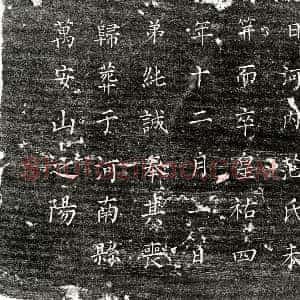 日河内范氏未
笄而卒皇祐四
年十二月一日
弟純誠奉其喪
歸葬于河南縣
萬安山之陽